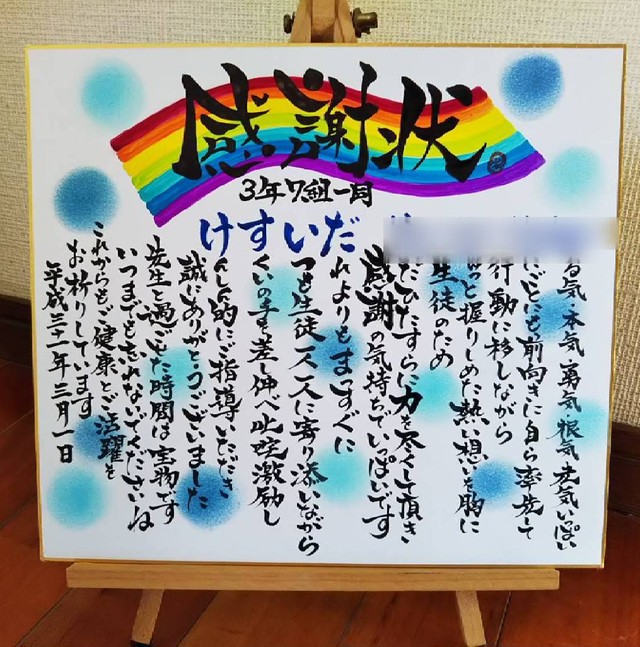 感謝状。
3年7組一同
けすいだ
る気 本気 勇気 根気 元気いっぱい
にごとにも前向きに自ら率先して
行動に移しながら
っと握りしめた熱い想いを胸に
生徒のため
だひたすらに力を尽くして頂き
感謝の気持ちでいっぱいです
れよりもまっすぐに
つも生徒一人一人に寄り添いながら
くいの手を差し伸べ叱咤激励し
んしん的にご指導いただき
誠にありがとうございました
先生と過ごした時間は宝物です
いつまでも忘れないでくださいね
これからもご健康とご活躍を
お祈りしています
平成三十一年三月一日